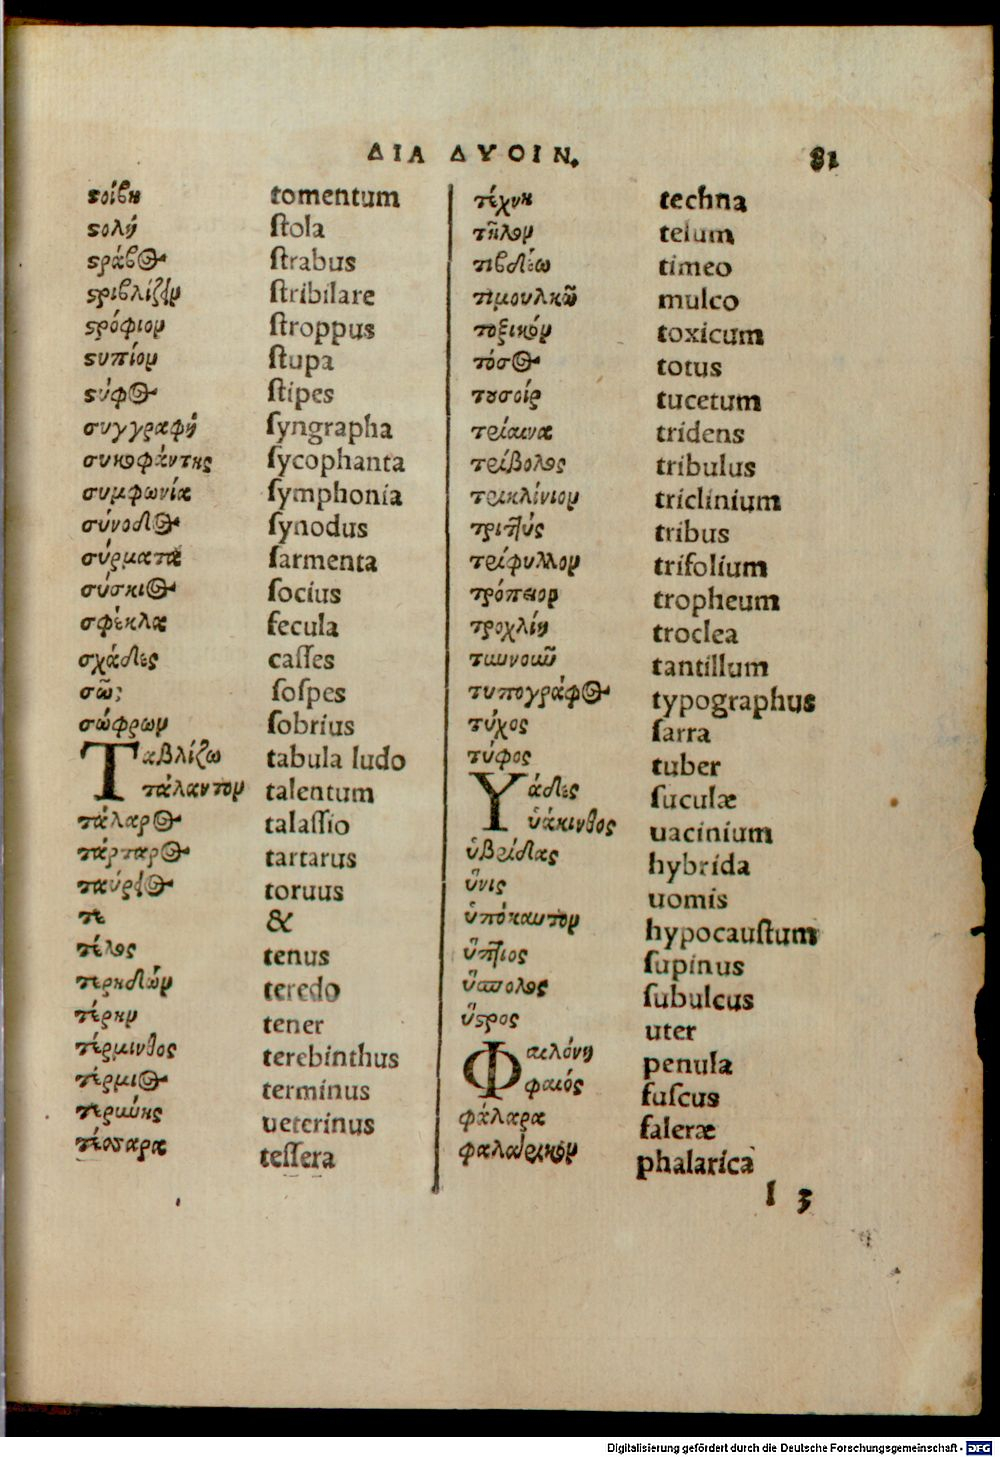 ΔΙΑ ΔΥΟΙΝ. 81
ϛοίβη tomentum
ϛολή ſtola
ϛράβος ſtrabus
ϛριβλίζειν ſtribilare
ϛρόφιον ſtroppus
ϛυπίον ſtupa
ϛύφος ſtipes
συγγραφή ſyngrapha
συκοφάντης ſycophanta
συμφωνία ſymphonia
σύνοδος ſynodus
σύρματα ſarmenta
σύσκιος ſocius
σφέκλα fecula
σχάδες caſſes
σῶς ſoſpes
σώφρων ſobrius
Ταβλίζω tabula ludo
τάλαντον talentum
τάλαρος talaſſio
τάρταρος tartarus
ταύρειος toruus
τε &
τέλος tenus
τερηδών teredo
τέρην tener
τέρμινθος terebinthus
τέρμιος terminus
ueterinus
τέσσαρα teſſera
τέχνη techna
τῆλον telum
τιβδέω timeo
τιμουλκῶ mulco
τοξικόν toxicum
τόσος totus
tucetum
τρίαινα tridens
τρίβολος tribulus
τρικλίνιον triclinium
τριττύς tribus
τρίφυλλον trifolium
τρόπειον tropheum
τροχλίη troclea
tantillum
τυπογράφος typographus
τύχος ſarra
τύφος tuber
Υάδες ſuculæ
ὑάκινθος uacinium
ὑβρίδας hybrida
ὕνις uomis
ὑπόκαυτον hypocauſtum
ὕπτιος ſupinus
ſubulcus
ὕϛρος uter
Φαελόνη penula
φαιός fuſcus
φάλαρα faleræ
phalarica
l 3
Digitalisierung gefördert durch die Deutsche Forschungsgemeinschaft - DFG